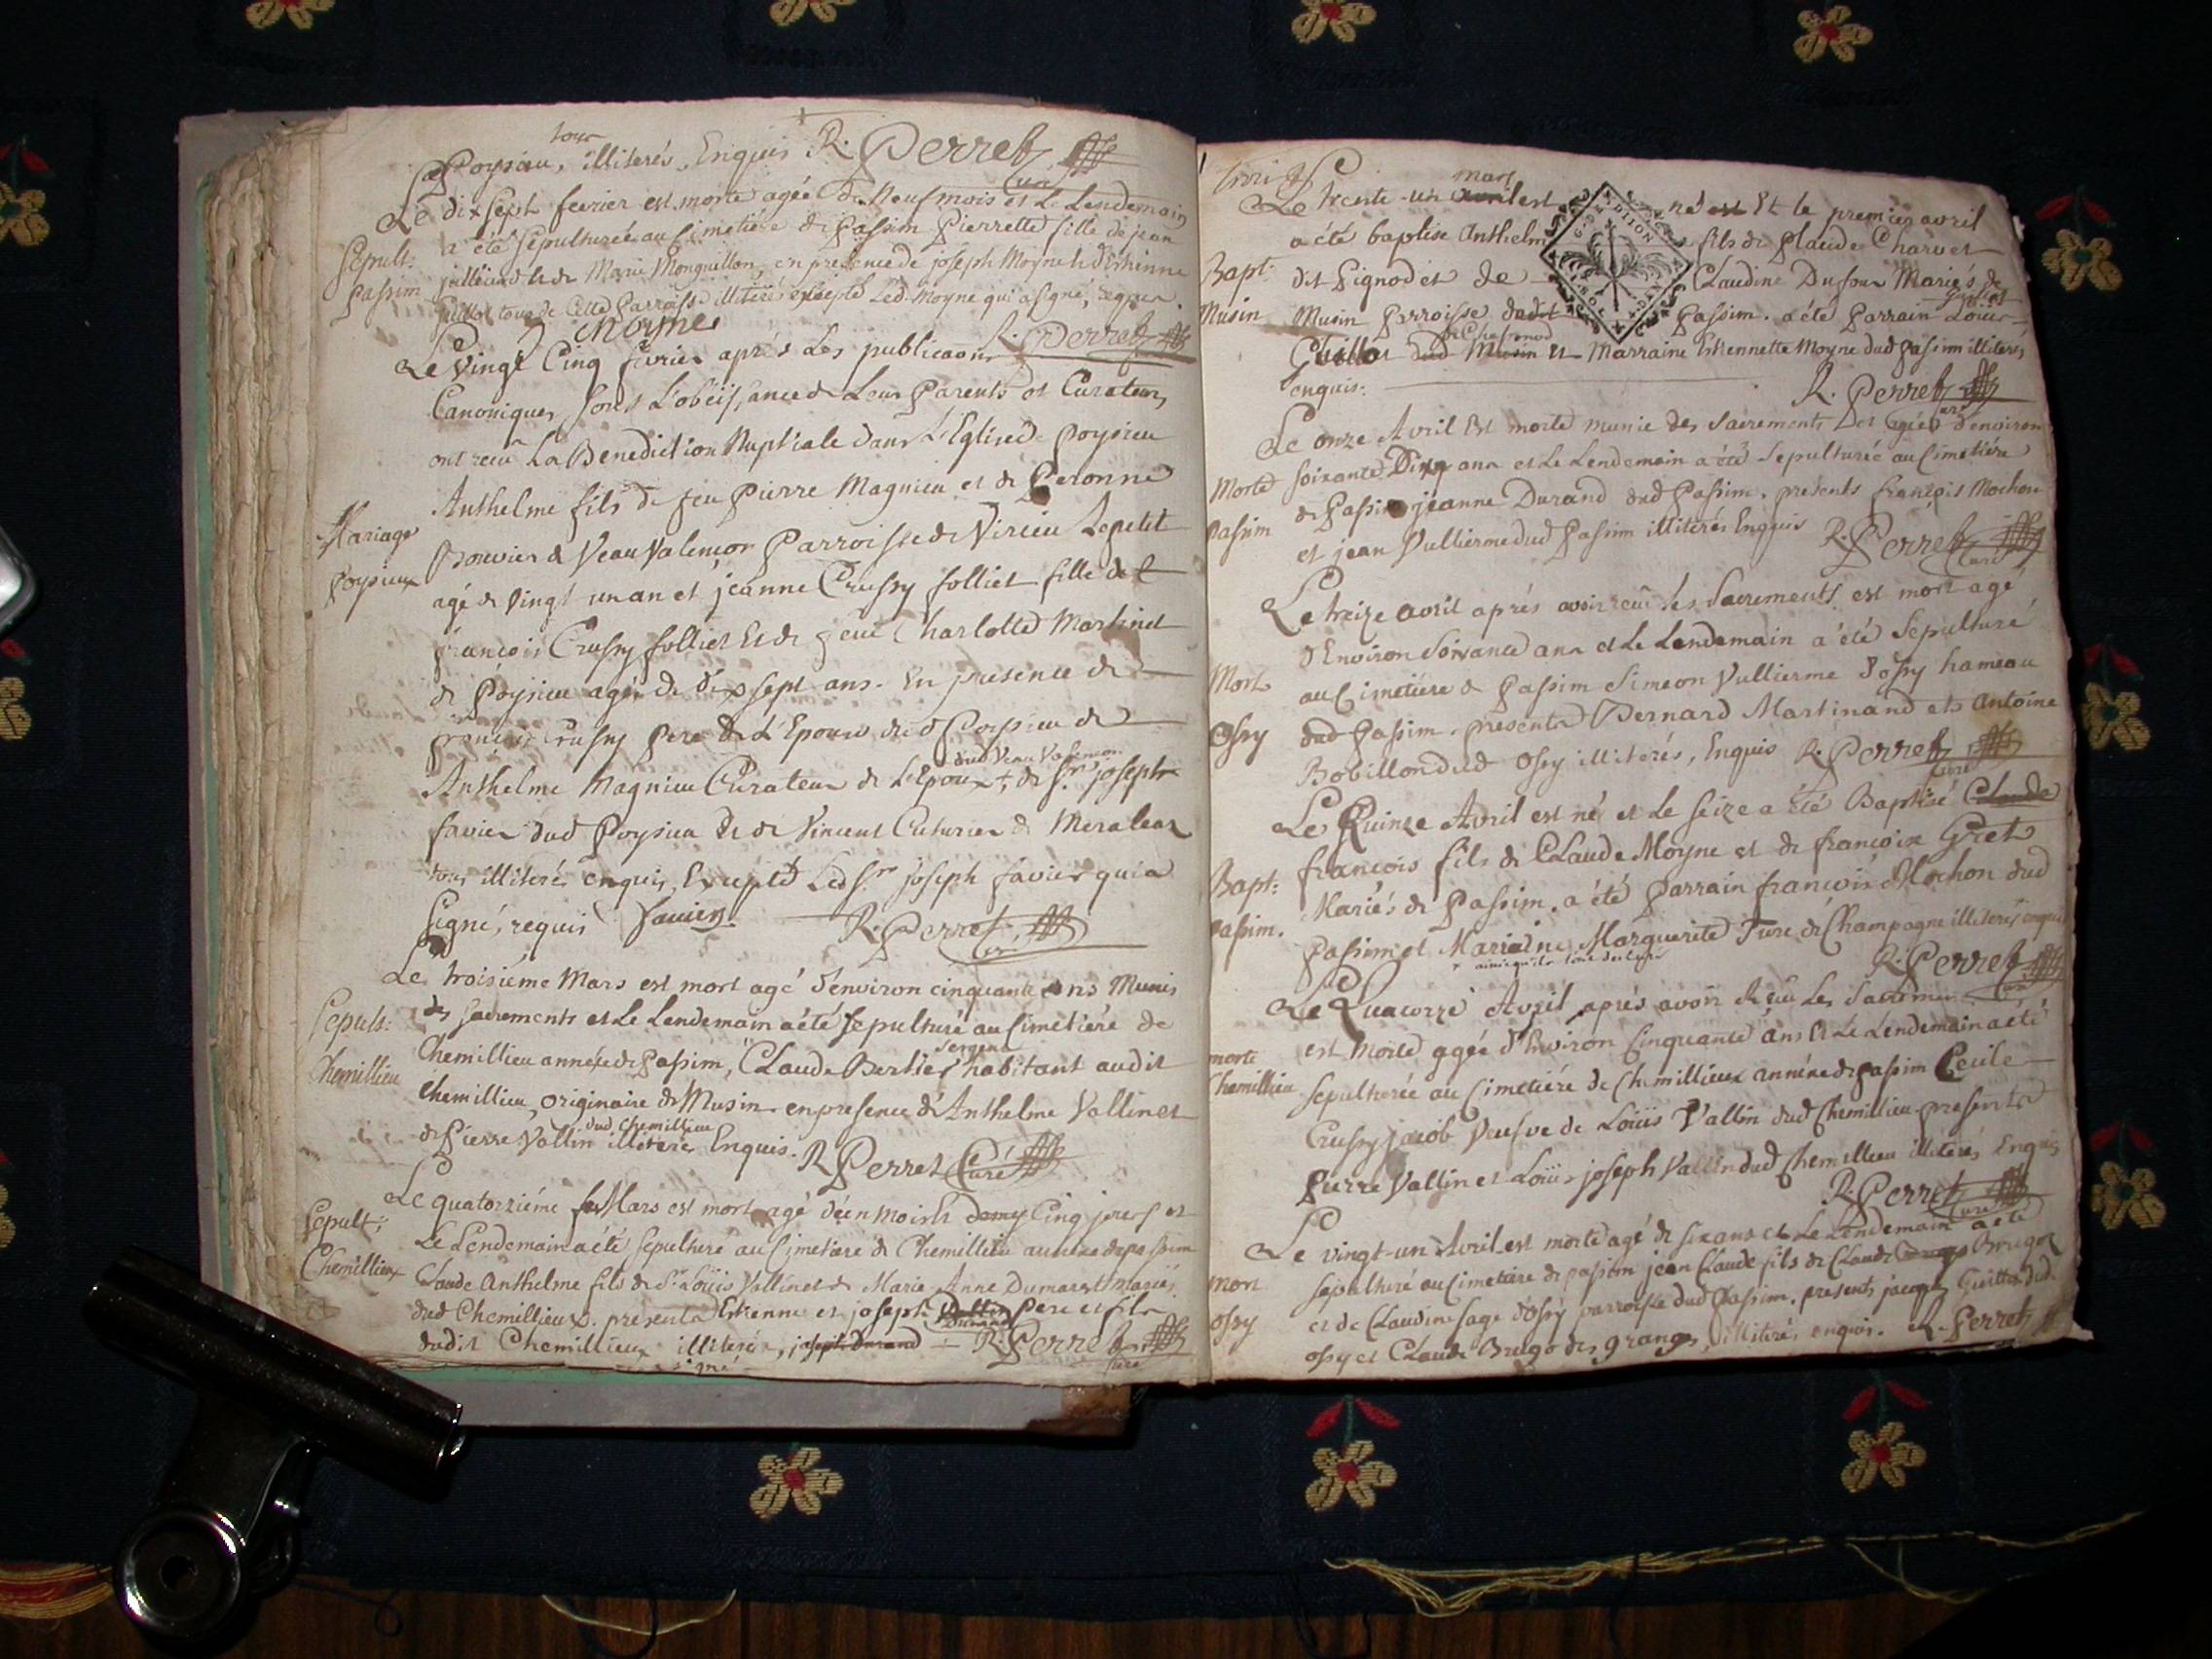 tous
Poysieu, illiterés, Enquis R. Perret
curé
Le dix sept fevrier est morte agée de Neuf mois et Le Lendemain
a été sepulturée au Cimetiére de Passim Pierrette fille de jean
Sepult:
Passim
et de Marie Monguillon, en presence de joseph Moyne et d'Etienne
Guillot tous de Cette Parroisse illiterés excepté Led. Moyne qui a signé, requis.
Moyne R. Perret
Le Vingt Cinq fevrier aprés Les publicaons
Canoniques, sous L'obeissance de Leurs Parents et Curateurs
ont recu La Benediction Nuptiale dans L'Eglise de Poysieu
Anthelme fils de feu Pierre Magnieu et de Peronne
Mariage
Poysieux
Bouvier de Veau Valencon Parroisse de Virieu Lepetit
agé de Vingt un an et jeanne Crussy folliet fille de
françois Crussy folliet Et de feue Charlotte Martinet
de Poysieu agée de dix sept ans. En presence de
françois Crussy pere de L'Epouse dud Poysieu de
dud Veau Valencon
Anthelme Magnieu Curateur de L'Epoux + de Sr. joseph
favier dud Poysieu et de Vincent Cuturier de
tous illiterés enquis, Excepté Led Sr. joseph favier qui a
signé, requis favier. R. Perret
curé
Le troisieme Mars est mort agé d'environ cinquante ans Munis
Sepult:
Chemillieu
des sacrements et Le Lendemain a été sepulturé au Cimetiére de
sergent
Chemillieu annéxe de Passim, Claude Bertier habitant audit
Chemillieu, originaire de Musin en presence d'Anthelme Vallin et
dud Chemillieu
de Pierre Vallin illiterés Enquis. R Perret Curé
Le quatorziéme Mars est mort agé d'un mois et demy Cinq jours et
Sepult:
Chemillieux
Le Lendemain a été sepulturé au Cimetiére de Chemillieu annéxe de passim
Claude Anthelme fils de Sr Loüis Vallin et de Marie Anne Dumarest mariés
dud Chemillieux. presents Etienne et joseph Vallin Pere et fils
Durand
dudit Chemillieux illiterés, joseph Durand R. Perret
signé curé
mars
Le trente-un avril est né est Et le premier avril
a été baptise Anthelme fils de Claude Charvet
Bapt:
Musin
dit Pignod et de Claudine Dufour Mariés de
Musin Parroisse dudit Passim. a été Parrain Louis
de Chassonod
Guillot dud Musin et Marraine Etiennette Moyne dud Passim illiterés
enquis: R. Perret
curé
Le onze Avril Est morte munie des sacrements Et agée d'environ
Morte
Passim
soixante Dix ans et Le Lendemain a été sepulturée au Cimetiére
de Passim jeanne Durand dud Passim. presents françois Mochon
et jean Vullierme dud Passim illiterés Enquis R. Perret
curé
Le treize avril aprés avoir recu Les Sacrements est mort agé
d'Environ soixante ans et Le Lendemain a été Sepulturé
Mort
Ossy
au Cimetiére de Passim Simeon Vullierme d'ossy hameau
dud Passim. presents Bernard Martinand et Antoine
Bobillon dud Ossy illiterés, Enquis R. Perret
curé
Le Quinze Avril est né et Le seize a été Baptisé Claude
Bapt:
Passim.
françois fils de Claude Moyne et de françoise Gret
Mariés de Passim. a été Parrain françois Mochon dud
Passim et Marraine Marguerite Ture de Champagne illiterés enquis
R. Perret
curé
Le Quatorze Avril aprés avoir Recu Les Sacremens
morte
Chemillieu
est Morte agée d'Environ Cinquante ans Et Le Lendemain a été
sepulturée au Cimetiére de Chemillieux annéxe de passim Cecile
Crussy jacob Veufve de Loüis Vallin dud Chemillieu presents
Pierre Vallin et Loüis joseph Vallin dud Chemillieu illiterés Enquis
R. Perret
curé
Le vingt-un Avril est mort agé de six ans et Le Lendemain a été
mort
ossy
sepulturé au Cimetiére de passim jean Claude fils de Claude Brugo
et de Claudine Sage d'Ossy parroisse dud Passim. presents jacques Guillot dud
ossy et Claude Brugo des granges, illiterés enquis. R. Perret